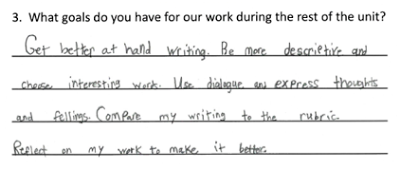 3. What goals do you have for our work during the rest of the unit?
Get better at hand writing. Be more descrietive and
choose interesting work. Use dialogue and express thoughts
and fellings. Compare my writing to the rubric.
Reflect on my work to make it better.